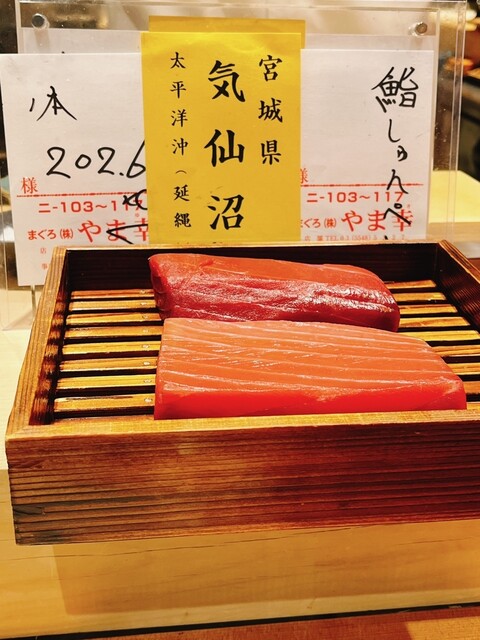 宮城県
気仙沼
太平洋沖(延縄
鮨しゅんぺい
様
ニ-103~117
まぐろ(株)やま幸
1本
202.6
様
ニ-103~117
まぐろ(株)やま幸